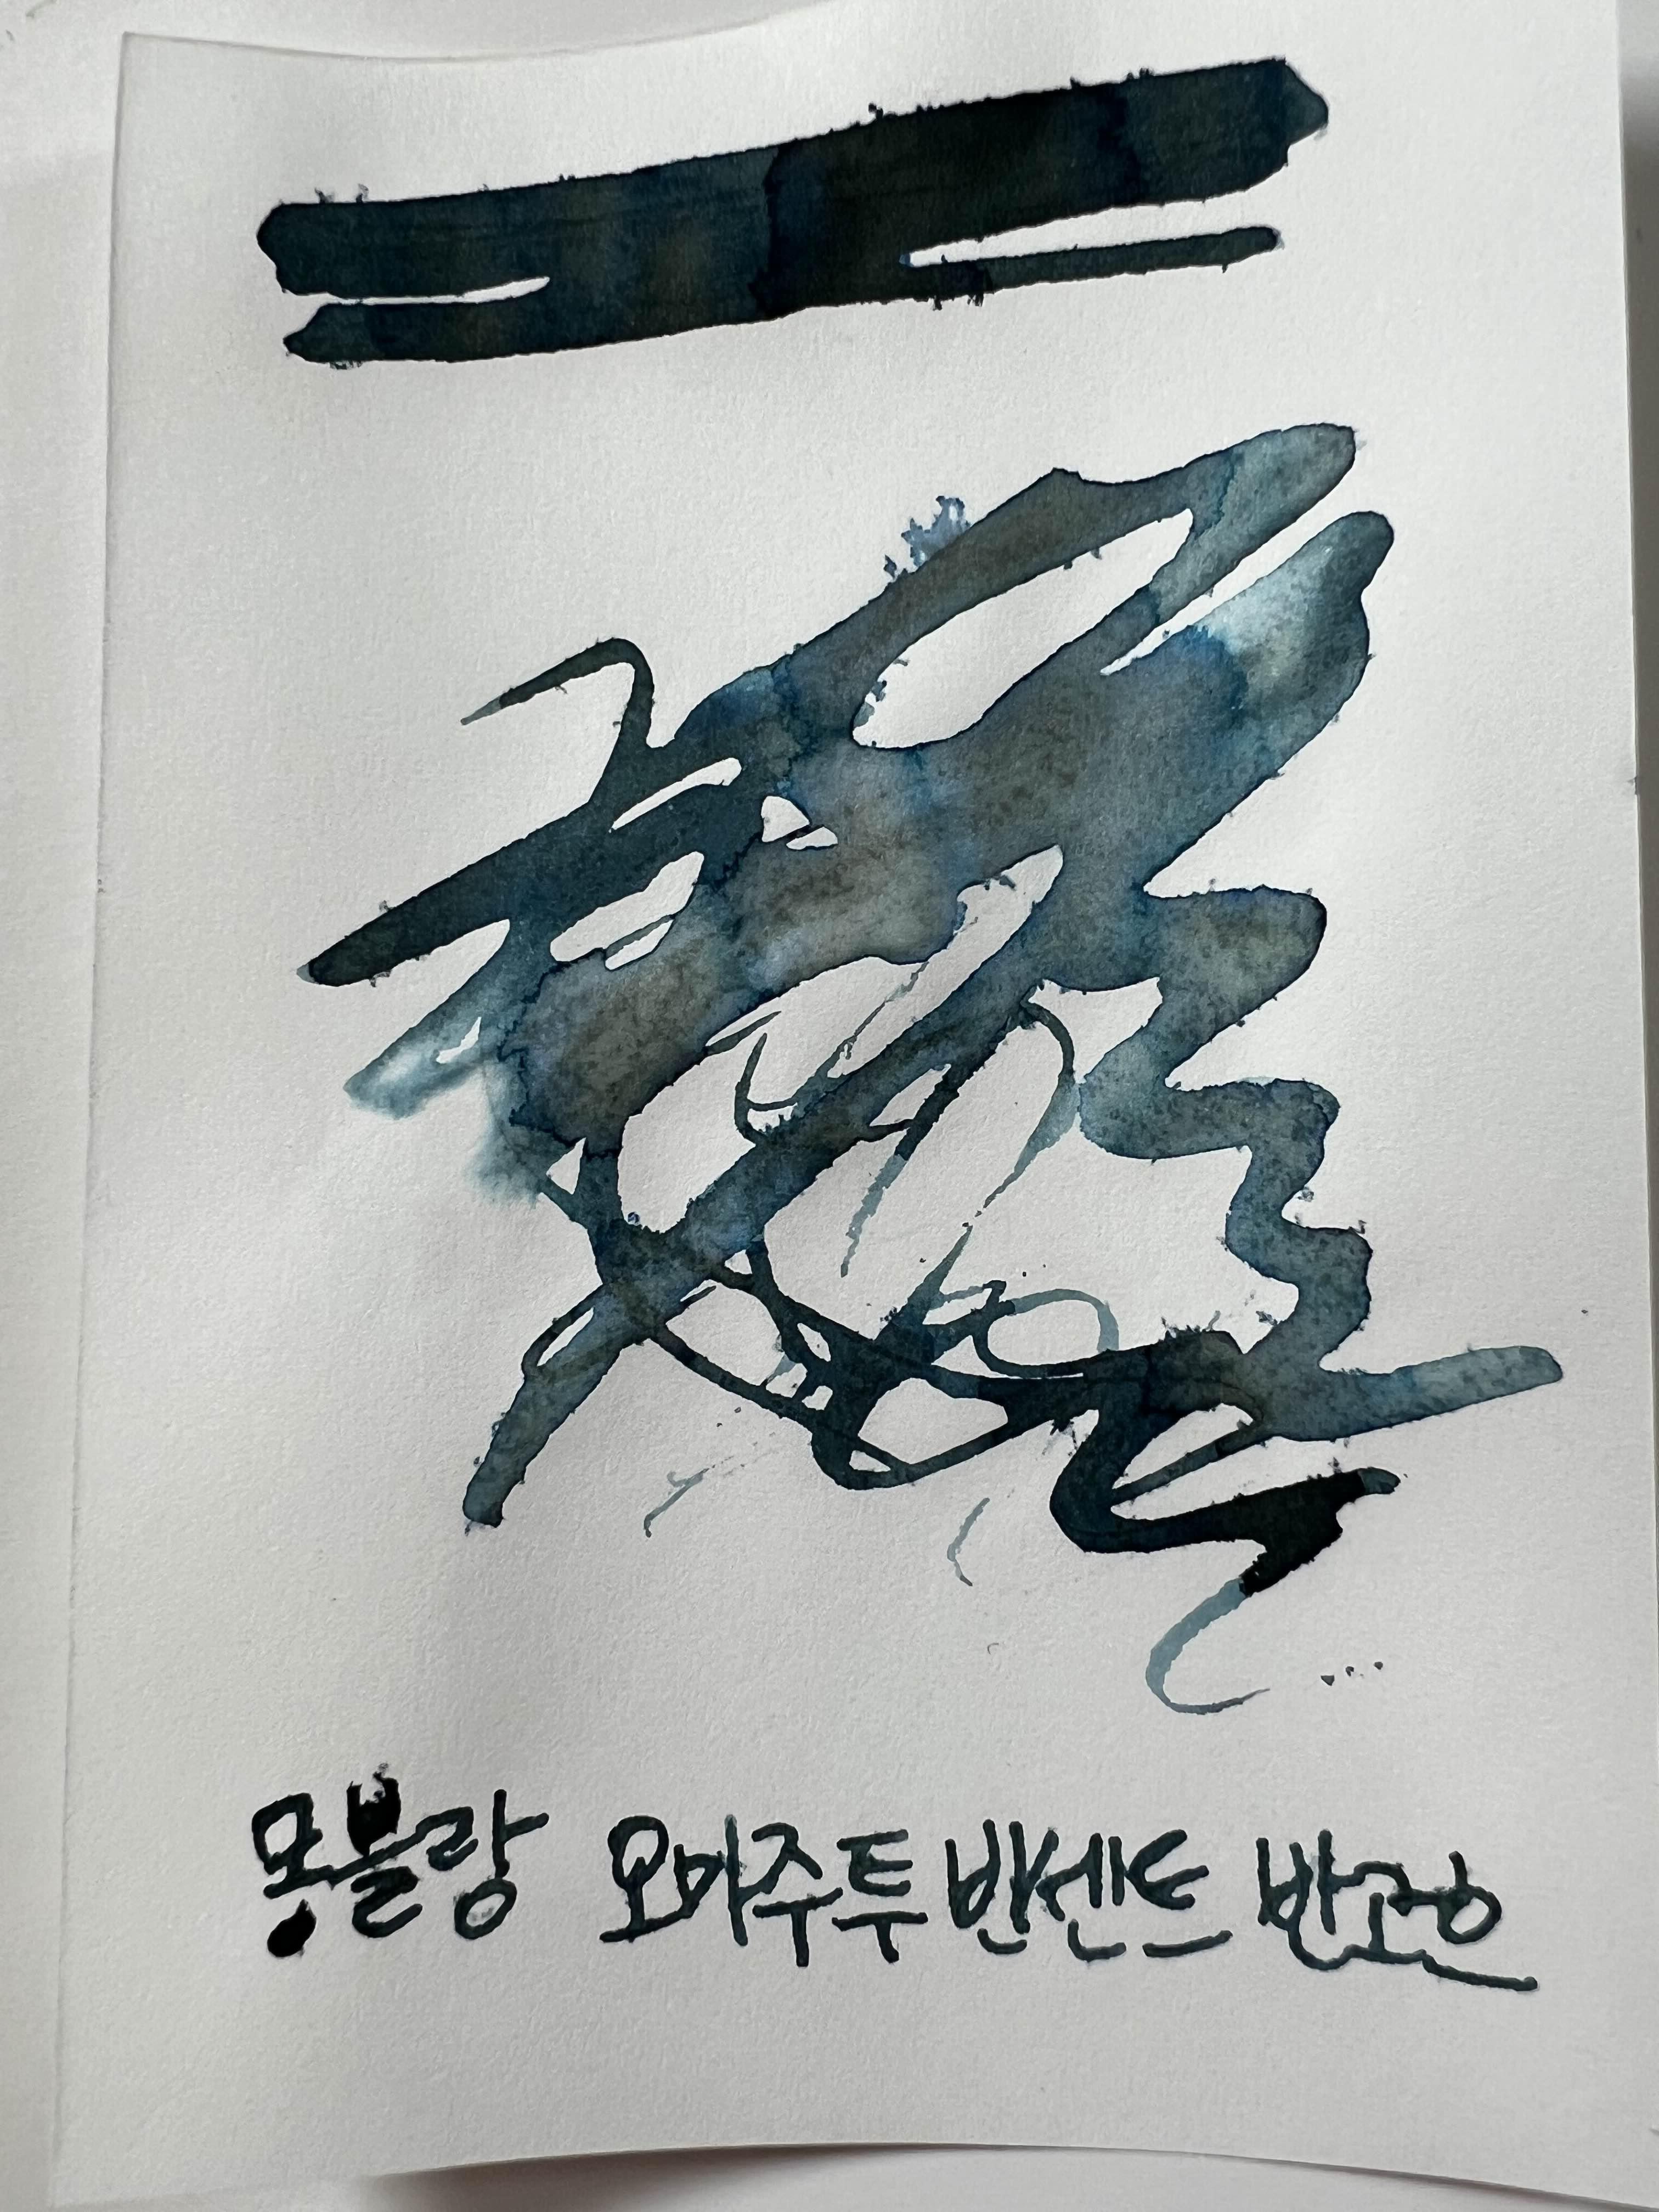 몽블랑 오마주 투 반센트 반고흐